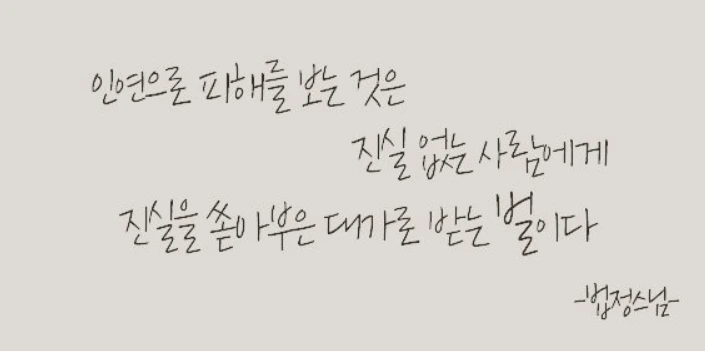 인연으로 피해를 보는 것은
진실 없는 사람에게
진실을 쏟아부은 대가로 받는 벌이다
-법정스님-